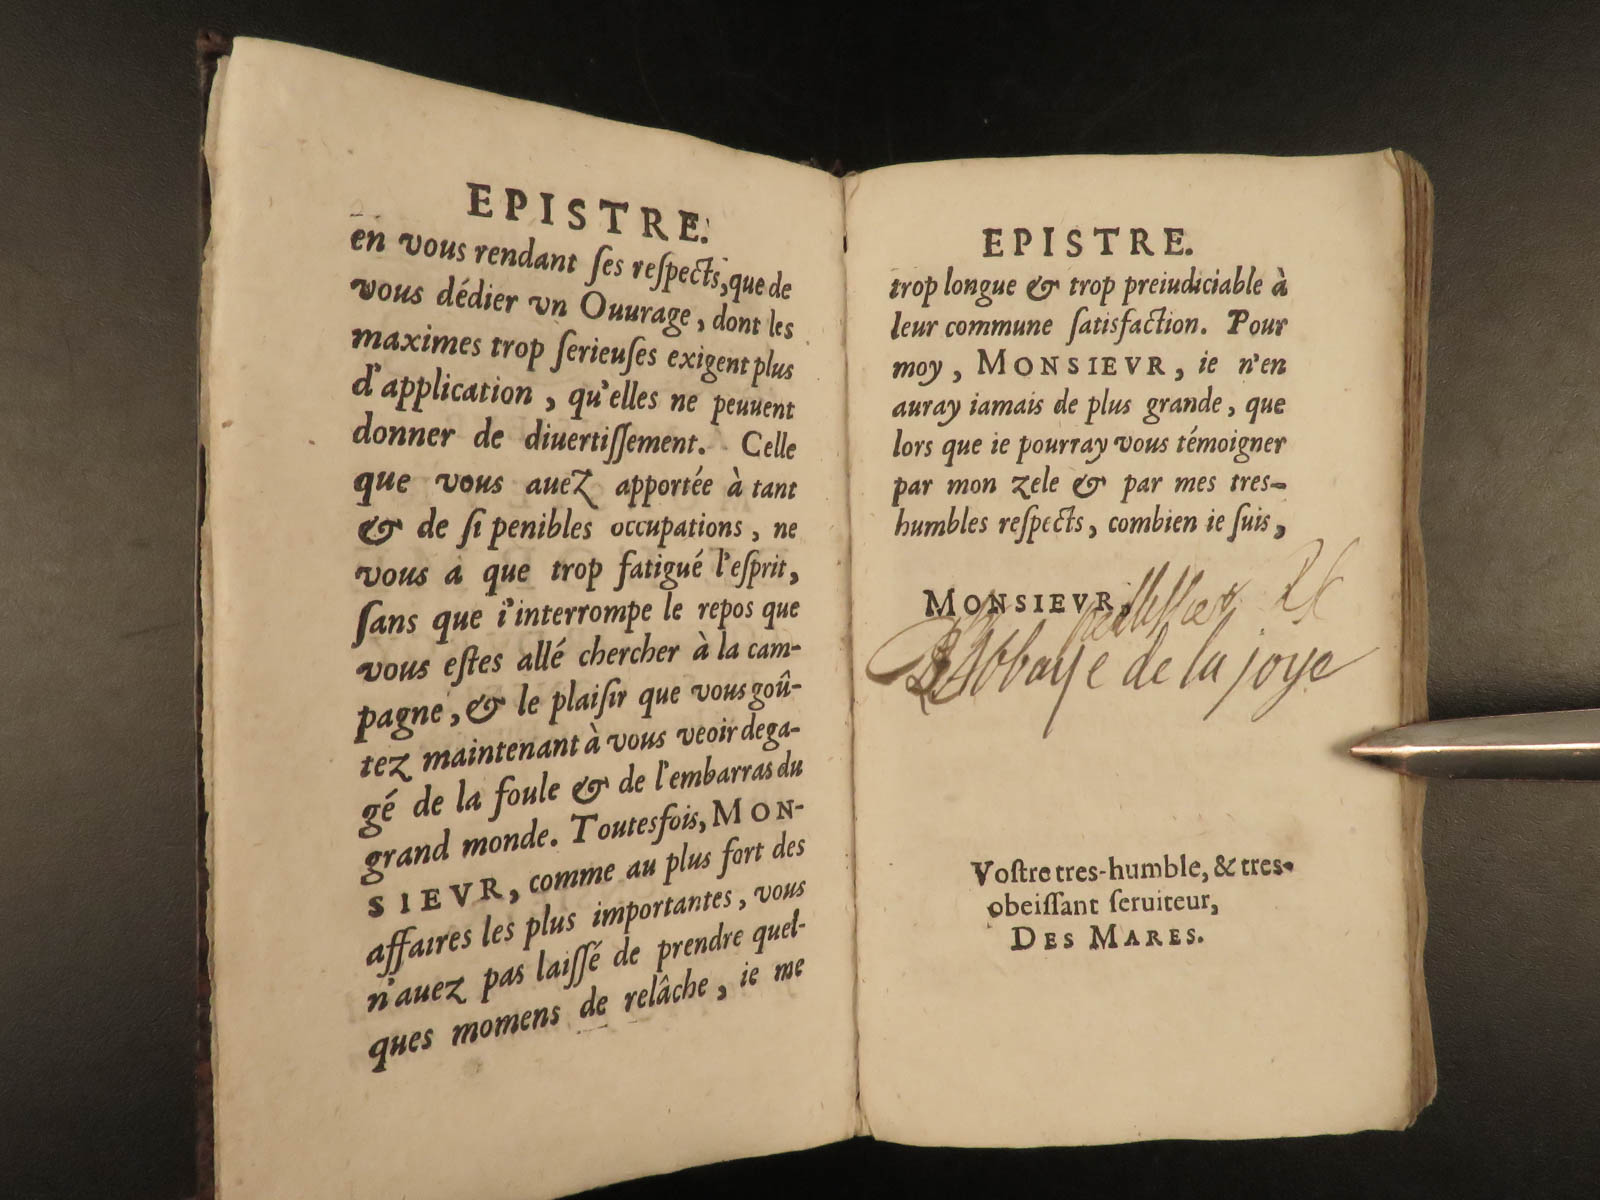 EPISTRE.
en vous rendant ſes reſpects, que de
vous dédier vn Ouurage, dont les
maximes trop ſerieuſes exigent plus
d'application, qu'elles ne peuuent
donner de diuertiſſement. Celle
que vous auez apportée à tant
& de ſi penibles occupations, ne
vous a que trop fatigué l'eſprit,
ſans que i'interrompe le repos que
vous eſtes allé chercher à la cam-
pagne, & le plaiſir que vous goû-
tez maintenant à vous veoir dega-
gé de la foule & de l'embarras du
grand monde. Toutesfois, MON-
SIEVR, comme au plus fort des
affaires les plus importantes, vous
n'auez pas laiſſé de prendre quel-
ques momens de relâche, ie me
EPISTRE.
trop longue & trop preiudiciable à
leur commune ſatisfaction. Pour
moy, MONSIEVR, ie n'en
auray iamais de plus grande, que
lors que ie pourray vous témoigner
par mon zele & par mes tres-
humbles reſpects, combien ie ſuis,
MONSIEVR,
Abbaye de la joye
Voſtre tres-humble, & tres-
obeiſſant ſeruiteur,
DES MARES.